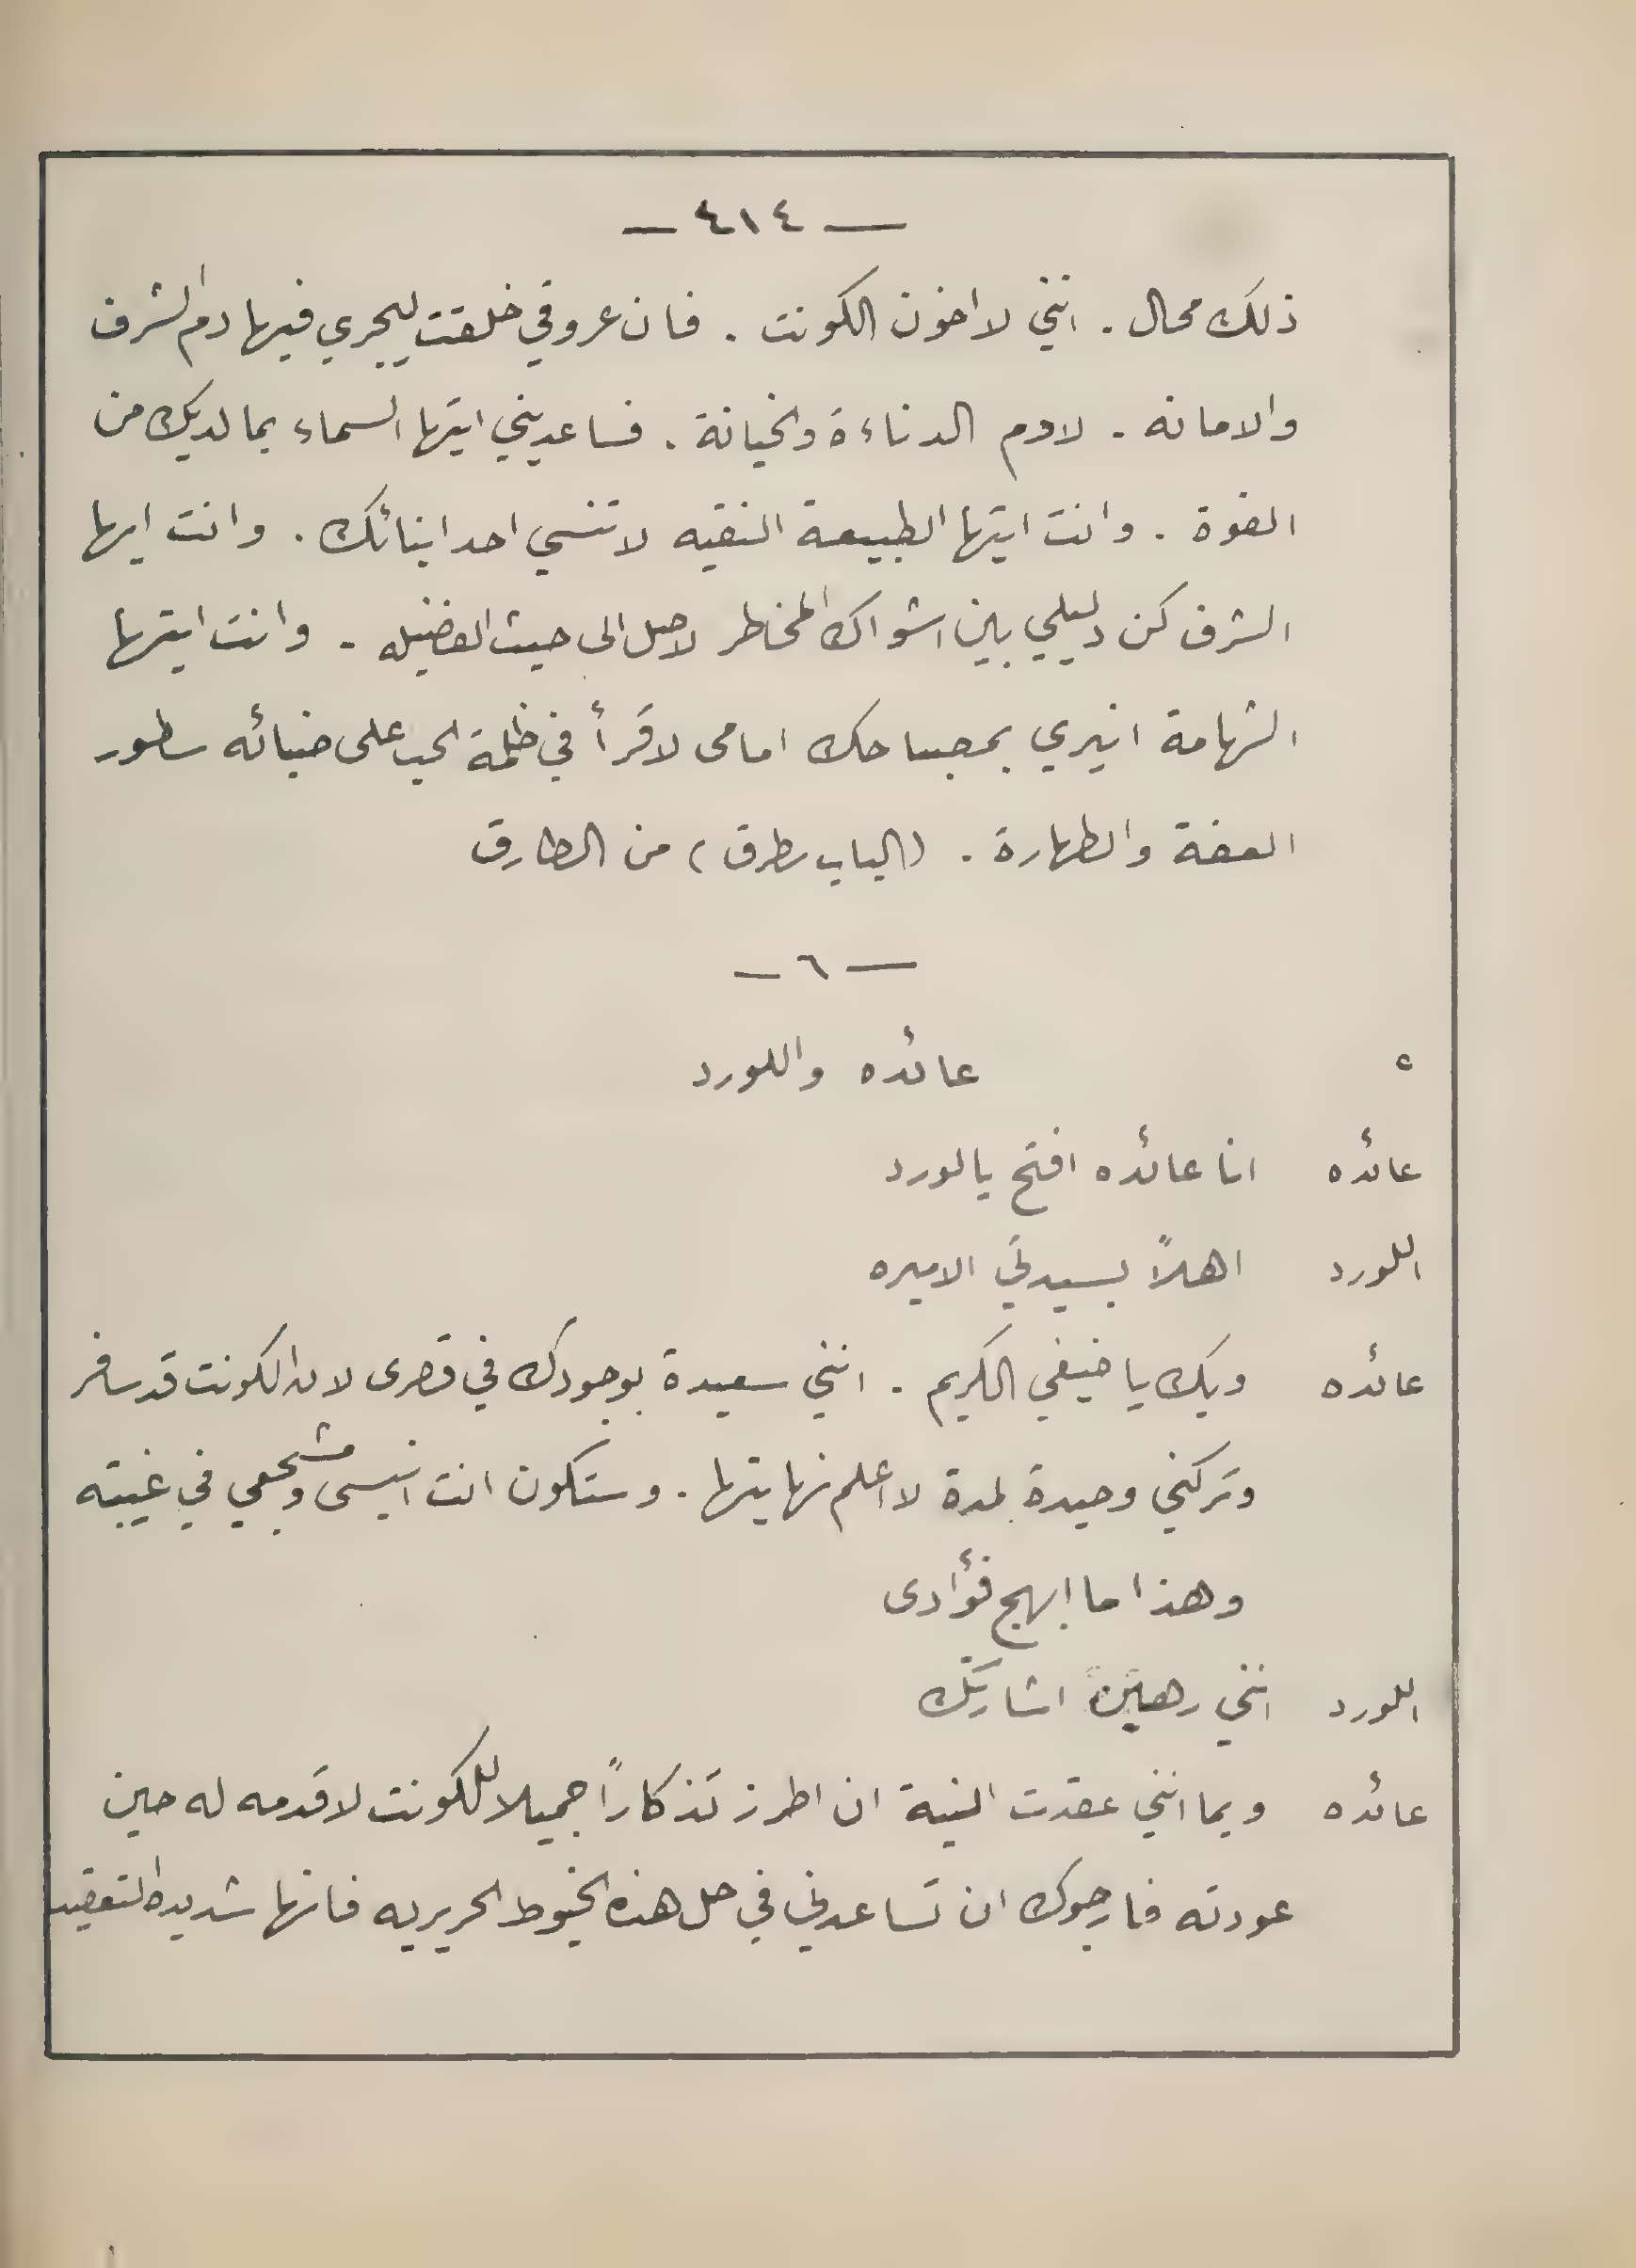 — ٤١٤ —
ذلك محال . انني لا اخون الكونت . فان عروقي خلقت ليجري فيها دم الشرف
والامانه . لادم الدناءة والخيانة . فساعديني ايتها السماء بمالديك من
القوة . وانت ايتها الطبيعة النقيه لاتنسي احد ابنائك . وانت ايها
الشرف كن دليلي بين اشواك المخاطر لاصل الى حيث الفضيله . وانت ايتها
الشهامة انيري بمصباحك امامى لاقرأ في ظلمة الحب على ضيائه سطور
العفة والطهارة . (الباب يطرق) من الطارق
— ٦ —
عائده واللورد
عائده انا عائده افتح يالورد
اللورد اهلاً بسيدتي الاميره
عائده وبك يا ضيفي الكريم . انني سعيدة بوجودك في قصرى لان الكونت قد سافر
وتركني وحيدة لمدة لا اعلم نهايتها . وستكون انت انيسى ومشجعي في غيبته
وهذا ما ابهج فؤادى
اللورد انني رهين اشارتك
عائده وبما انني عقدت النية ان اطرز تذكاراً جميلا للكونت لاقدمه له حين
عودته فارجوك ان تساعدني في حل هذه الخيوط الحريريه فانها شديدة التعقيد